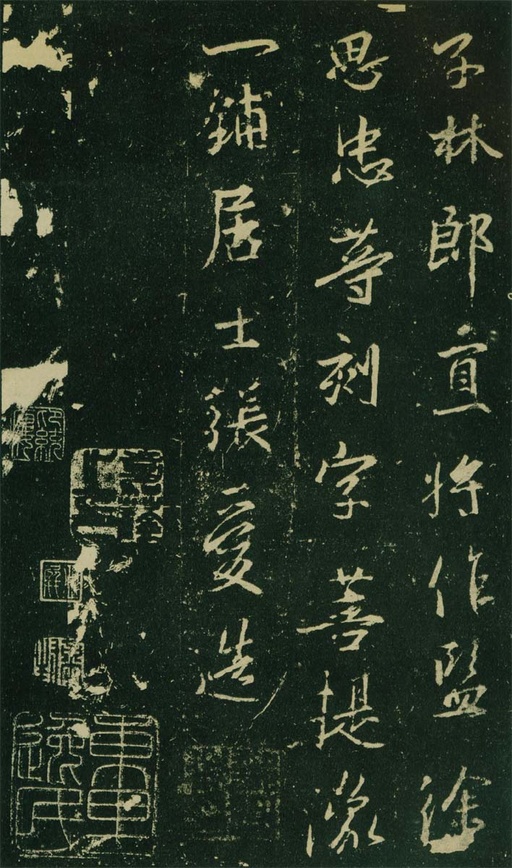 子林郎直将作監徐
思忠等刻字菩提像
一鋪居士張愛造